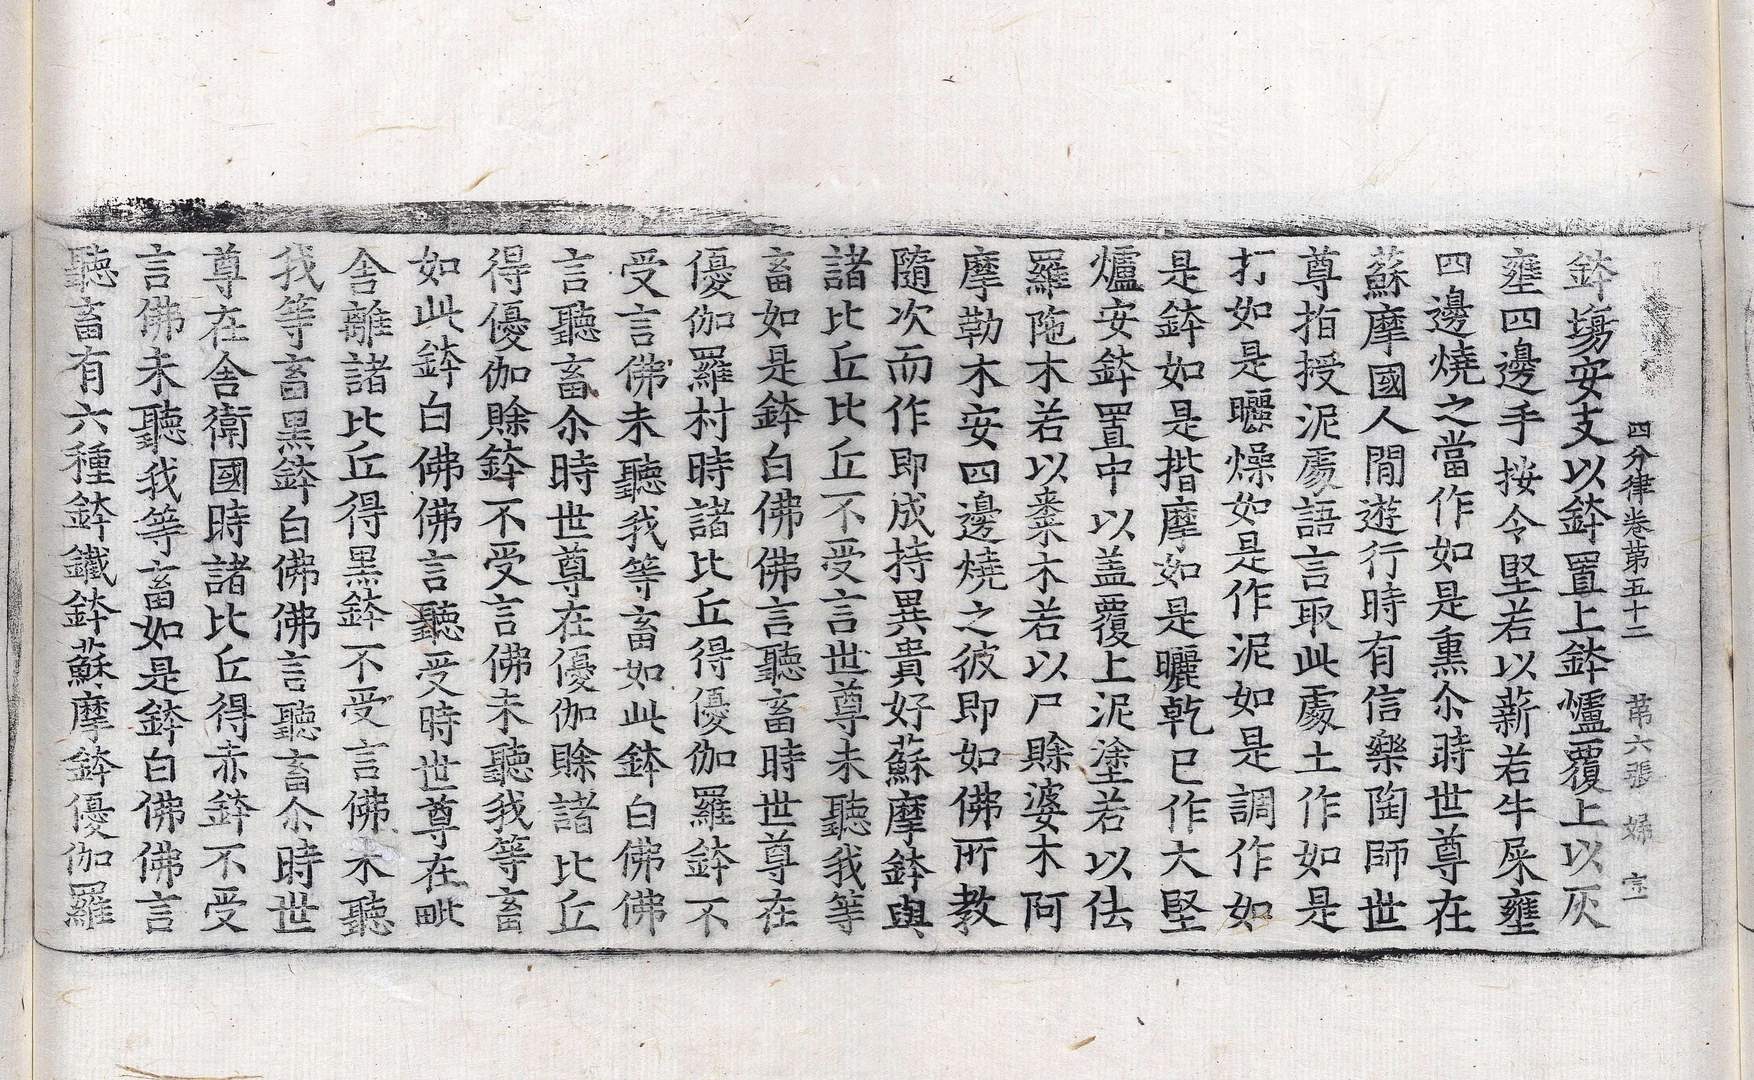 四分律卷第五十二 第六張 婦 宗
鉢場安支以鉢置上鉢爐覆上以灰
壅四邊手按令堅若以薪若牛屎壅
四邊燒之當作如是熏尒時世尊在
蘇摩國人間遊行時有信樂陶師世
尊指授泥處語言取此處土作如是
打如是曬燥如是作泥如是調作如
是鉢如是揩摩如是曬乾已作大堅
爐安鉢置中以盖覆上泥塗若以佉
羅陁木若以棗木若以尸賒婆木阿
摩勒木安四邊燒之彼即如佛所教
隨次而作即成持異貴好蘇摩鉢與
諸比丘比丘不受言世尊未聽我等
畜如是鉢白佛佛言聽畜時世尊在
優伽羅村時諸比丘得優伽羅鉢不
受言佛未聽我等畜如此鉢白佛佛
言聽畜尒時世尊在優伽賒諸比丘
得優伽賒鉢不受言佛未聽我等畜
如此鉢白佛佛言聽受時世尊在毗
舍離諸比丘得黑鉢不受言佛未聽
我等畜黑鉢白佛佛言聽畜尒時世
尊在舍衛國時諸比丘得赤鉢不受
言佛未聽我等畜如是鉢白佛佛言
聽畜有六種鉢鐵鉢蘇摩鉢優伽羅